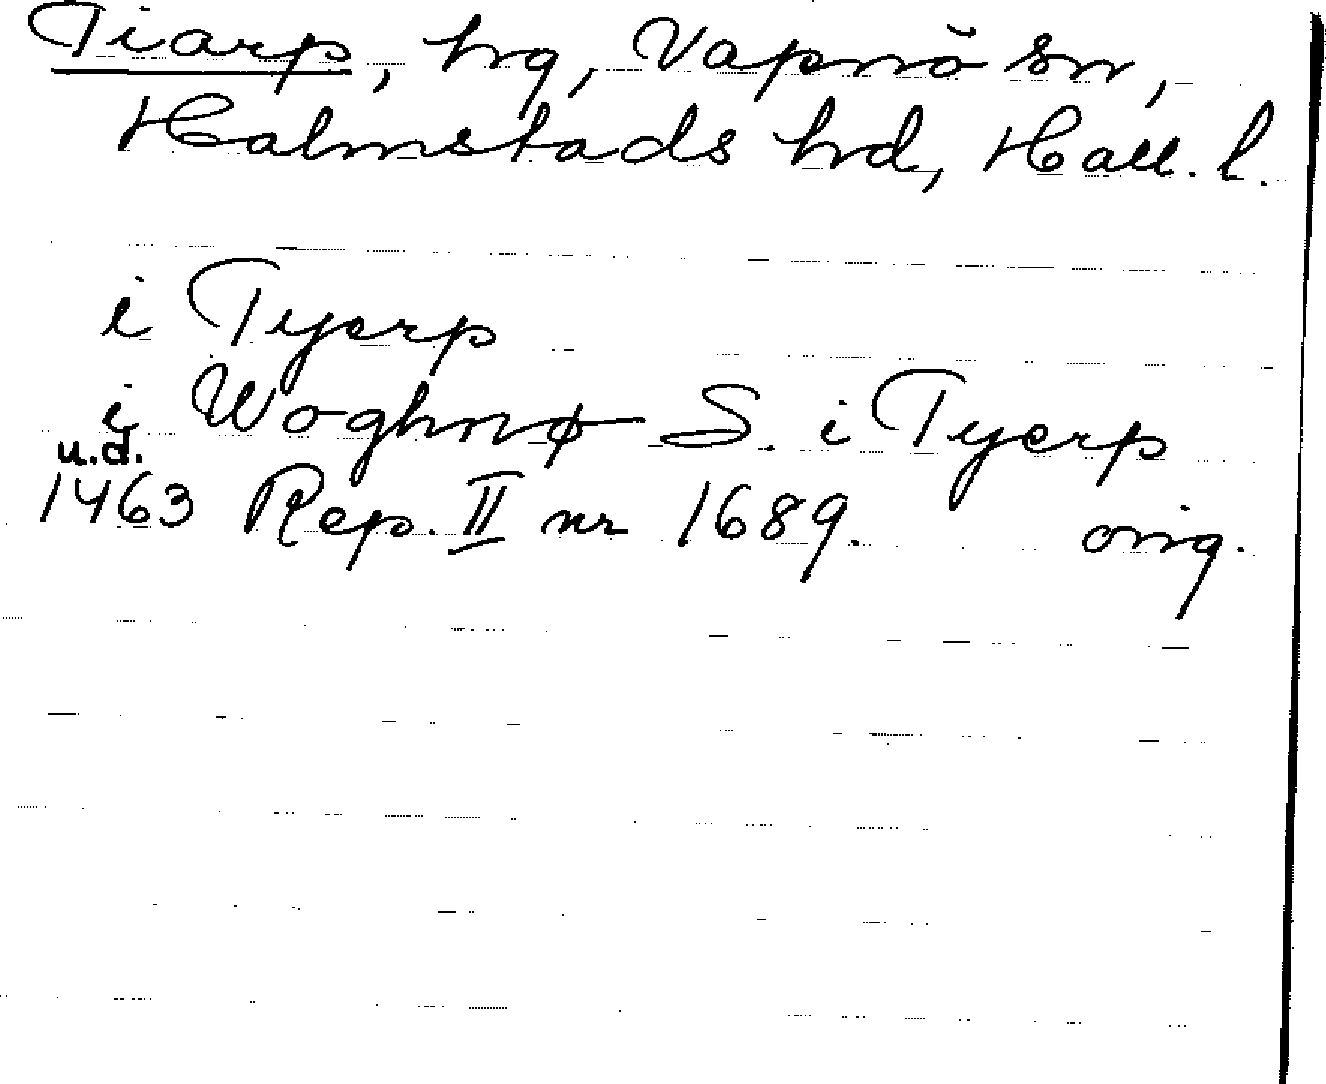 Tiarp, hg, Vapnö sn,
Halmstads hd, Hall. l.
i Tyerp
i Woghnø S. i Tyerp
u.d.
1463 Rep. II nr 1689. orig.